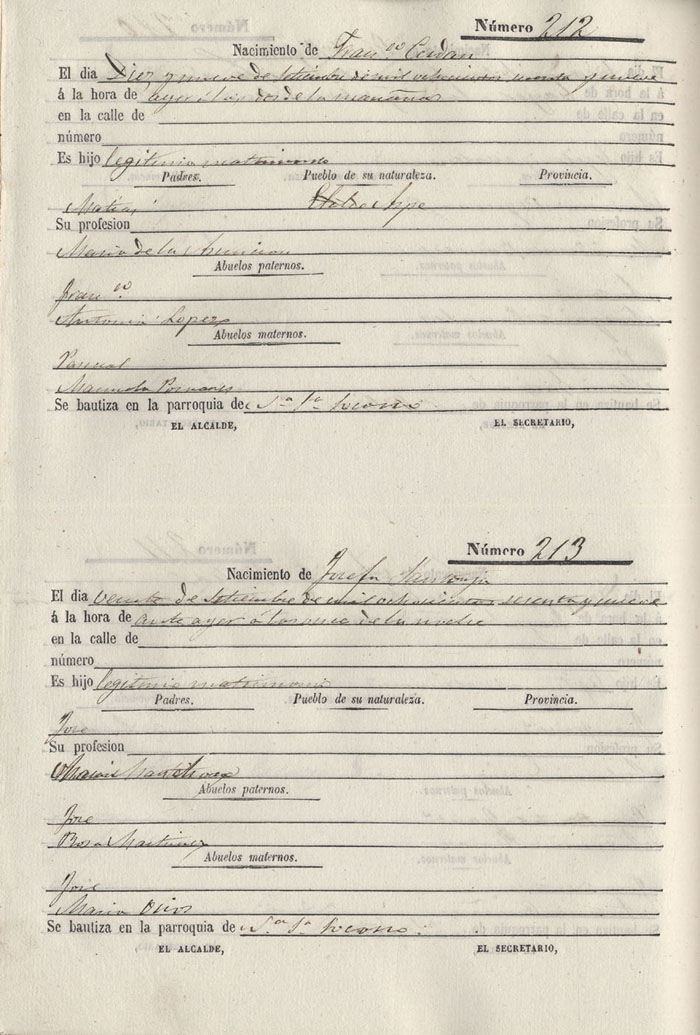 Número 212
Nacimiento de Fran.co Cerdan
El dia Diez y nueve de Setiembre de mil ochocientos sesenta y nueve
á la hora de ayer á las dos de la mañana
en la calle de
número
Es hijo legitimo matrimonio
Padres. Pueblo de su naturaleza. Provincia.
Matias Aspe
Su profesion
Maria de la Asuncion
Abuelos paternos.
Fran.co
Antonia Lopez
Abuelos maternos.
Pascual
Manuela
Se bautiza en la parroquia de N.a S.a Socorro
EL ALCALDE, EL SECRETARIO,
Número 213
Nacimiento de Josefa
El dia veinte de Setiembre de mil ochocientos sesenta y nueve
á la hora de ante ayer á las once de la noche
en la calle de
número
Es hijo legitimo matrimonio
Padres. Pueblo de su naturaleza. Provincia.
Jose
Su profesion
Maria
Abuelos paternos.
Jose
Rosa Martinez
Abuelos maternos.
Jose
Maria
Se bautiza en la parroquia de N.a S.a Socorro.
EL ALCALDE, EL SECRETARIO,